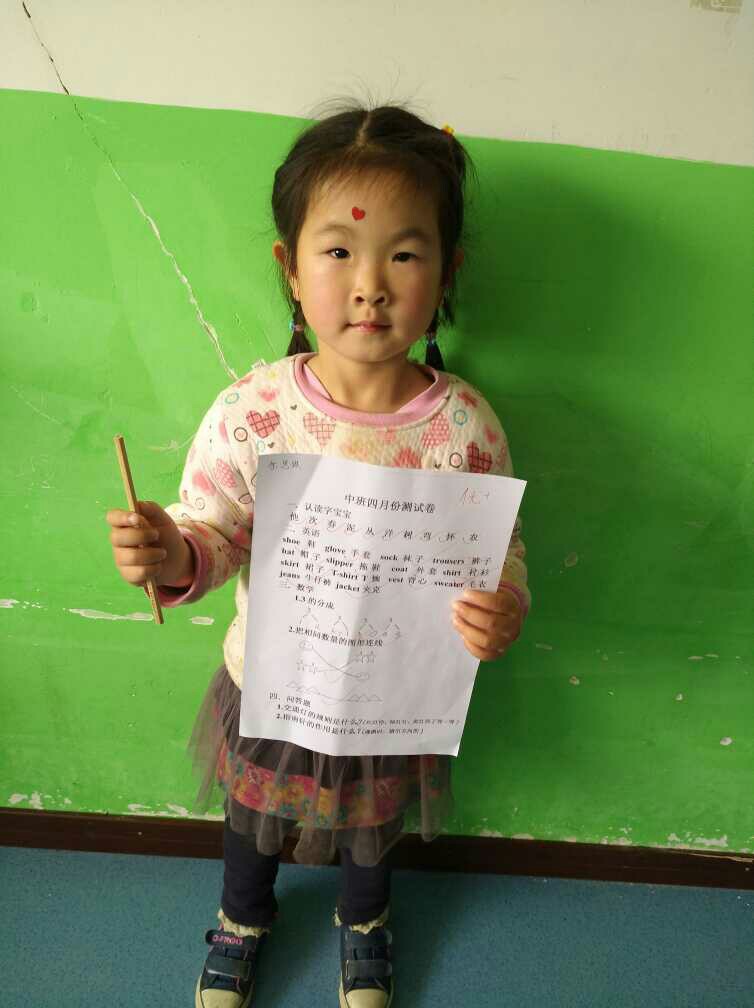 优+
中班四月份测试卷
一 认读字宝宝
他 次 春 泥 从 洋 刺 弯 怀 农
二 英语
shoe 鞋 glove 手套 sock 袜子 trousers 裤子
hat 帽子 slipper 拖鞋 coat 外套 shirt 衬衫
skirt 裙子 T-shirt T恤 vest 背心 sweater 毛衣
jeans 牛仔裤 jacket 夹克
三、数学
1.3的分成
2.把相同数量的图形连线
四、问答题
1.交通灯的规则是什么?(红灯停，绿灯行，黄灯亮了等一等)
2.指南针的作用是什么?